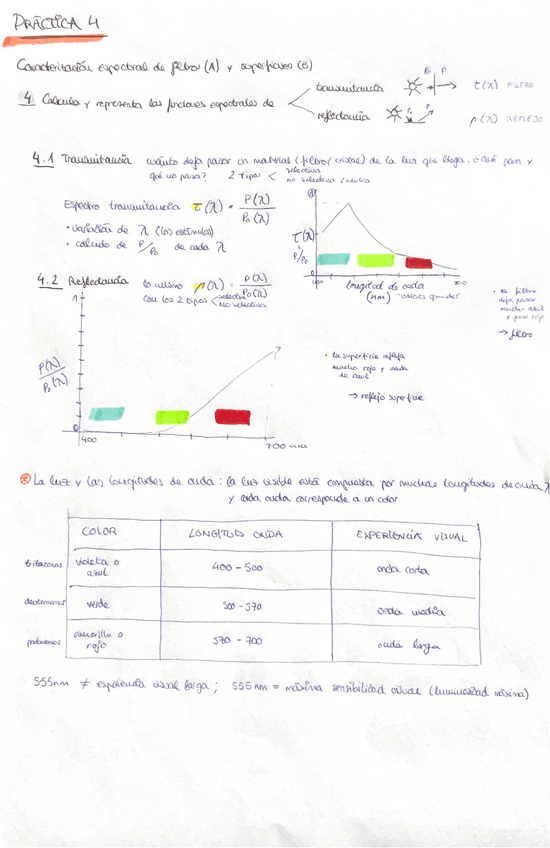 PRÁCTICA 4
Caracterización espectral de filtros (A) y superficies (B)
4 Calculo y representa las funciones espectrales de
transmitancia
P₀ P
τ(λ) FILTRO
reflectancia
P₀ P
ρ(λ) REFLEJO
4.1 Transmitancia cuánto deja pasar un material (filtro/cristal) de la luz que llega. ¿Qué pasa y
qué no pasa? 2 tipos < selectiva
no selectiva/neutra
Espectro transmitancia τ(λ) = P(λ)/P₀(λ)
• variación de λ (los estímulos)
• cálculo de P/P₀ de cada λ
τ(λ)
P/P₀
0
400
700
longitud de onda
(nm)
4.2 Reflectancia lo mismo ρ(λ) = P(λ)/P₀(λ)
con los 2 tipos < selectiva
no selectiva
• el filtro
deja pasar
mucho azul
y poco rojo
→ filtro
1
P(λ)/P₀(λ)
0
400
700 nm
• la superficie refleja
mucho rojo y nada
de azul
→ reflejo superficie
La luz y las longitudes de onda: la luz visible está compuesta por muchas longitudes de onda λ
y cada onda corresponde a un color
COLOR LONGITUD ONDA EXPERIENCIA VISUAL
violeta o
azul
400 - 500 onda corta
verde 500 - 570 onda media
amarillo o
rojo
570 - 700 onda larga
555nm ≠ experiencia visual larga; 555nm = máxima sensibilidad visual (luminosidad máxima)